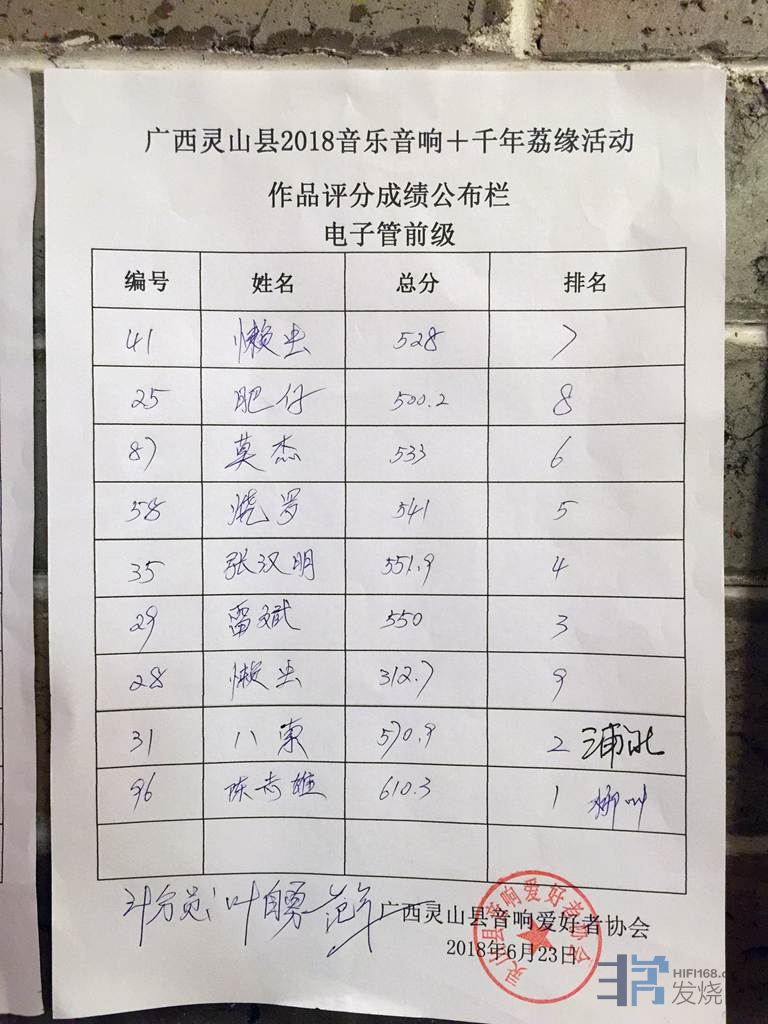 广西灵山县2018音乐音响＋千年荔缘活动
作品评分成绩公布栏
电子管前级
编号 姓名 总分 排名
41 懒虫 528 7
25 肥仔 500.2 8
87 莫杰 533 6
58 烧罗 541 5
35 张汉明 551.9 4
29 雷斌 550 3
28 懒虫 312.7 9
31 八东 570.9 2 浦北
96 陈志雄 610.3 1 柳州
计分员：叶自勇
广西灵山县音响爱好者协会
2018年6月23日
灵山县音响爱好者协会
HIFI168.c
发烧